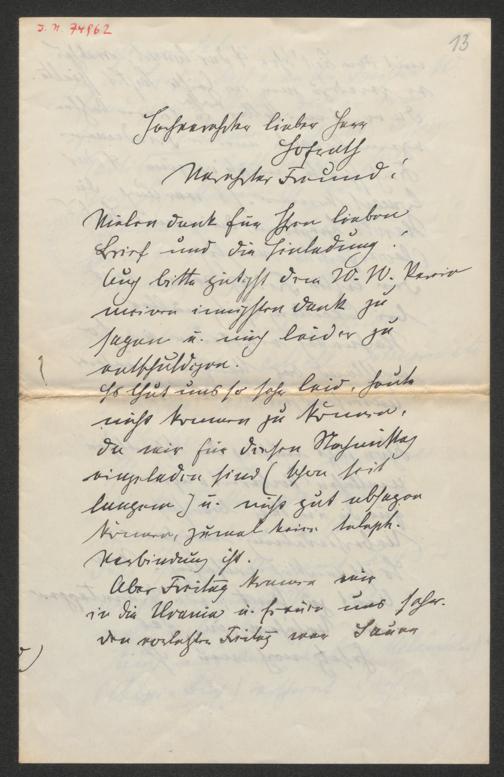 J. N. 74962
13
Hochverehrter lieber Herr
Hofrath
Verehrter Freund!
Vielen Dank für Ihren lieben
Brief und die Einladung!
Auch bitte gütigst dem W. W.
meinen innigsten Dank zu
sagen u. mich leider zu
entschuldigen.
Es thut uns so sehr leid, heute
nicht kommen zu können,
da wir für diesen Nachmittag
eingeladen sind (schon seit
langem) u. nicht gut absagen
können, zumal keine teleph.
Verbindung ist.
Aber Freitag kommen wir
in die Urania u. freuen uns sehr.
Den vorletzten Freitag war